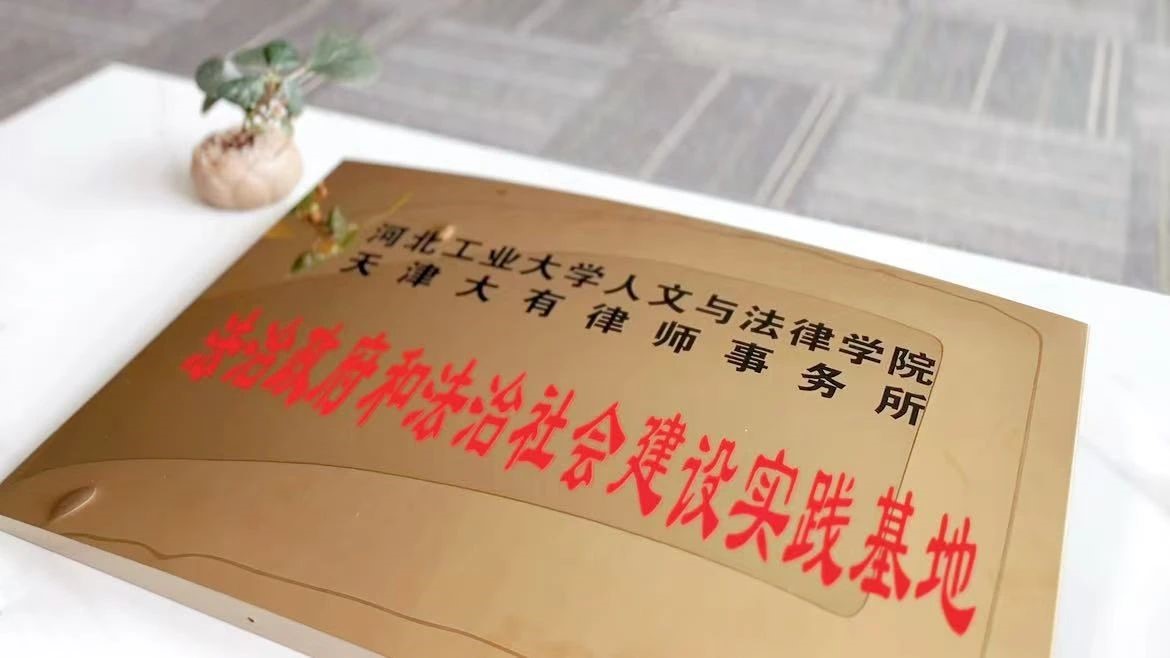 河北工业大学人文与法律学院
天津大有律师事务所
法治政府和法治社会建设实践基地